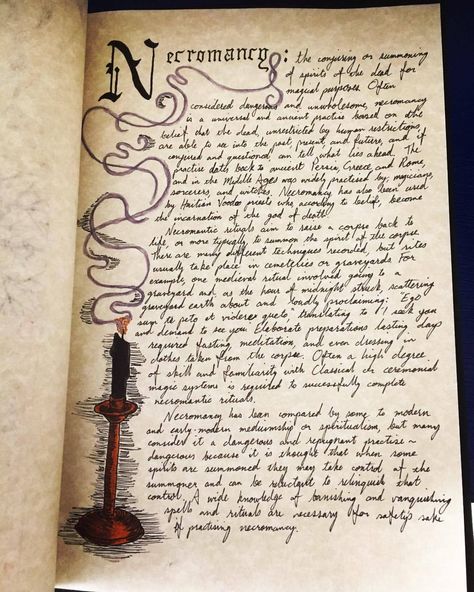 Necromancy: the conjuring or summoning
of spirits of the dead for
magical purposes. Often
considered dangerous and unwholesome, necromancy
is a universal and ancient practise based on the
belief that the dead, unrestricted by human restrictions,
are able to see into the past, present, and future, and if
conjured and questioned, can tell what lies ahead. The
practise dates back to ancient Persia, Greece, and Rome,
and in the Middle Ages was widely practised by magicians,
sorcerers, and witches. Necromancy has also been used
by Haitian Voodoo priests who, according to belief, become
the incarnation of the god of death.
Necromantic rituals aim to raise a corpse back to
life, or more typically to summon the spirit of the corpse.
There are many different techniques recorded, but rites
usually take place in cemeteries or graveyards. For
example, one medieval ritual involved going to a
graveyard and, as the hour of midnight struck, scattering
graveyard earth about and loudly proclaiming: "Ego
sum te peto et videre queto" translating to "I seek you
and demand to see you." Elaborate preparations lasting days
required fasting, meditation, and even dressing in
clothes taken from the corpse. Often a high degree
of skill and familiarity with Classical or ceremonial
magic systems is required to successfully complete
necromantic rituals.
Necromancy has been compared by some to modern
and early-modern mediumship or spiritualism, but many
consider it a dangerous and repugnant practise ~
dangerous because it is thought that when some
spirits are summoned they may take control of the
summoner and can be reluctant to relinquish that
control. A wide knowledge of banishing and vanquishing
spells and rituals are necessary for safety's sake
if practising necromancy.